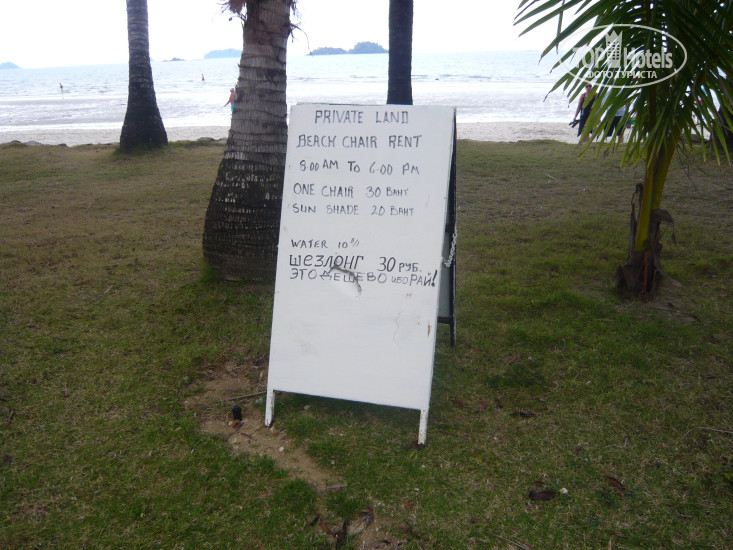 TOPHotels
ФОТО ТУРИСТА
PRIVATE LAND
BEACH CHAIR RENT
8.00 AM TO 6.00 PM
ONE CHAIR 30 BAHT
SUN SHADE 20 BAHT
WATER 10
ШЕЗЛОНГ 30 РУБ.
ЭТО ДЕШЕВО ИБО РАЙ!